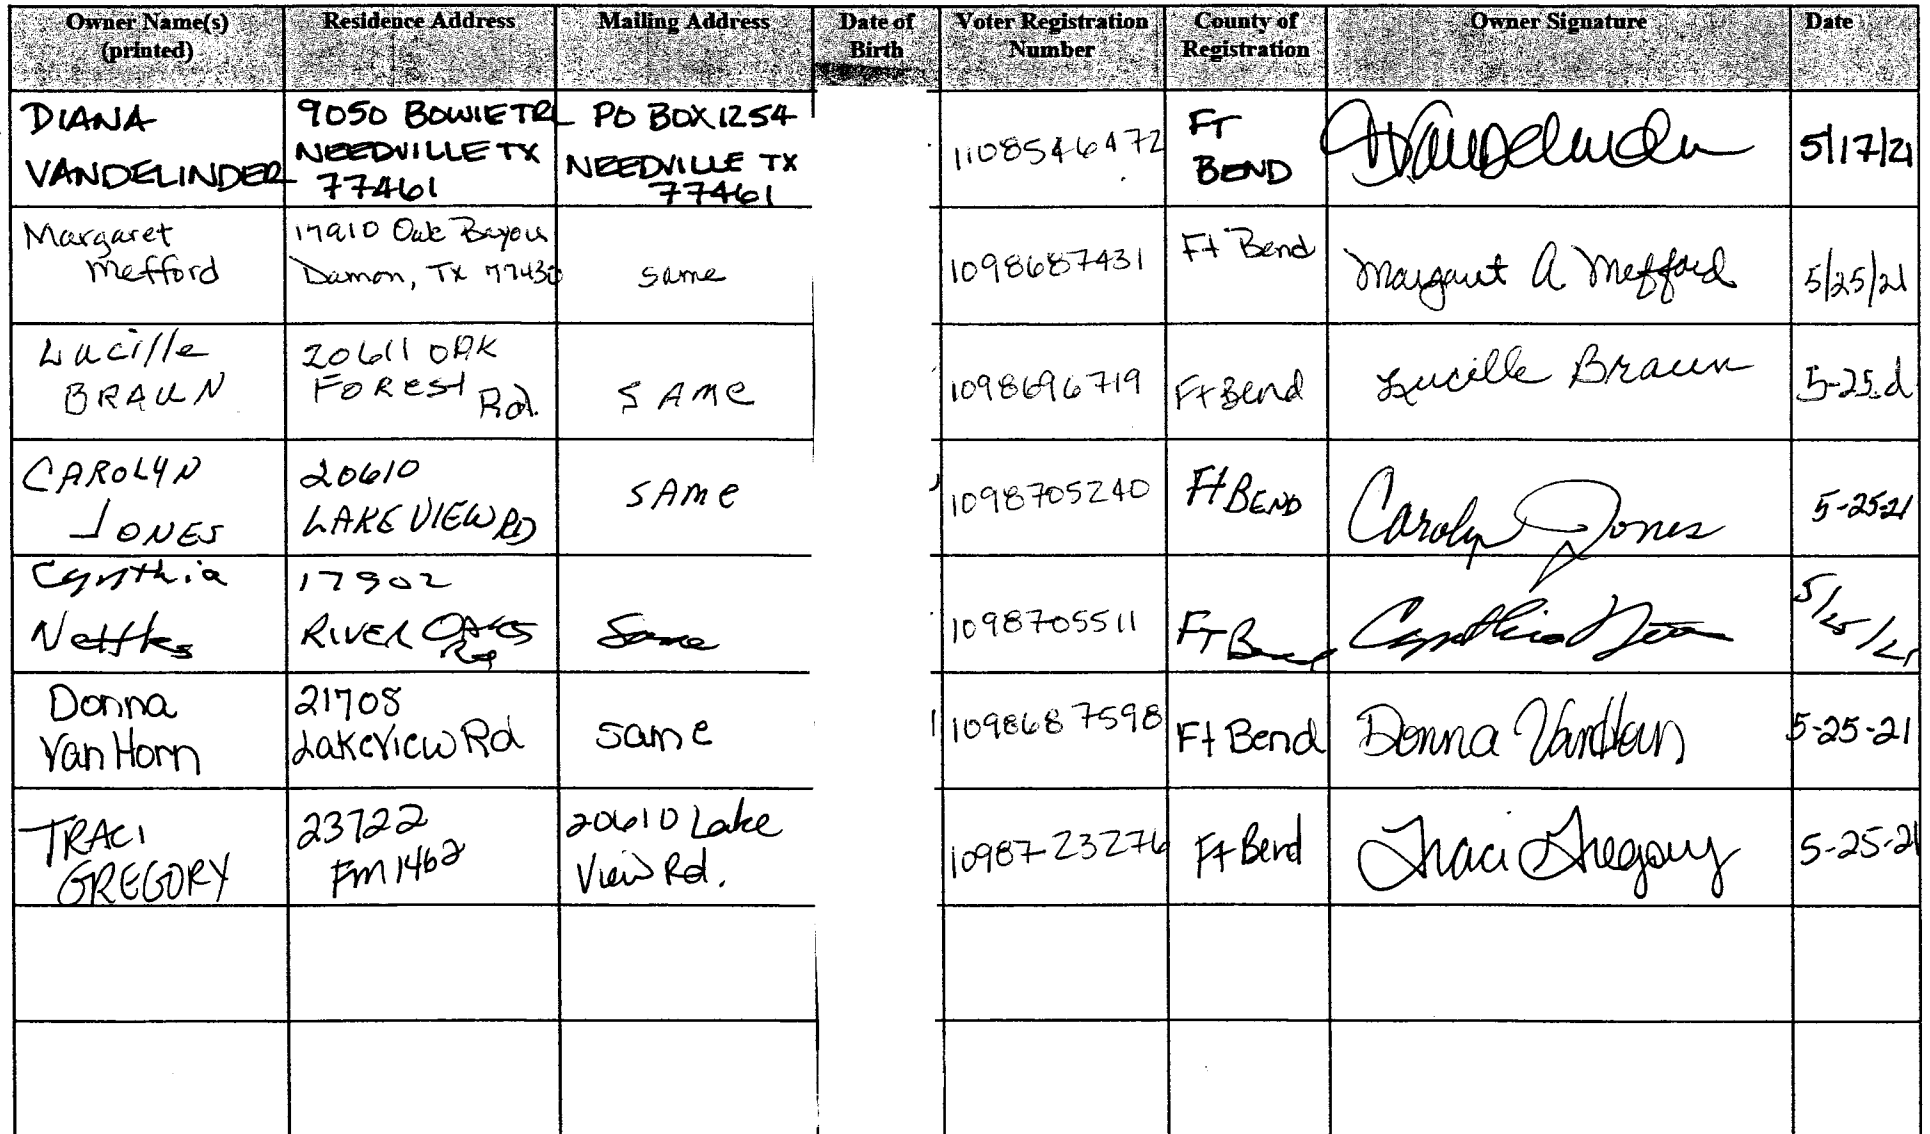 Owner Name(s)
(printed)
Residence Address
Mailing Address
Date of
Birth
Voter Registration
Number
County of
Registration
Owner Signature
Date
DIANA
VANDELINDER
9050 BOWIE TRL
NEEDVILLE TX
77461
PO BOX 1254
NEEDVILLE TX
77461
1108546472
FT
BEND
5/17/21
Margaret
Mefford
17910 Oak Bayou
Damon, TX 77430
same
1098687431
Ft Bend
Margaret A Mefford
5/25/21
Lucille
BRAUN
20611 OAK
FOREST
Rd.
SAME
1098696719
Ft Bend
Lucille Braun
5-25-21
CAROLYN
JONES
20610
LAKE VIEW RD
SAME
1098705240
Ft BEND
Carolyn Jones
5-25-21
Cynthia
17902
RIVER OAKS
Rd
Same
1098705511
FT Bend
Cynthia
5/25/21
Donna
Van Horn
21708
Lakeview Rd
same
1098687598
Ft Bend
Donna VanHorn
5-25-21
TRACI
GREGORY
23722
Fm 1462
20610 Lake
View Rd.
1098723276
Ft Bend
Traci Gregory
5-25-21